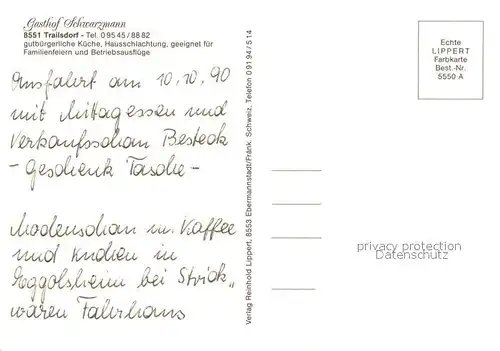 Gasthof Schwarzmann
8551 Trailsdorf - Tel. 0 95 45 / 88 82
gutbürgerliche Küche, Hausschlachtung, geeignet für
Familienfeiern und Betriebsausflüge
Ausfahrt am 10.10.90
mit Mittagessen und
Verkaufsschau Besteck
- Geschenk Tasche -
Modenschau m. Kaffee
und Kuchen in
Eggolsheim bei Strick"
waren Fahrhaus
Verlag Reinhold Lippert, 8553 Ebermannstadt/Fränk. Schweiz, Telefon 0 91 94 / 5 14
Echte
LIPPERT
Farbkarte
Best.-Nr.
5550 A
privacy protection
Datenschutz